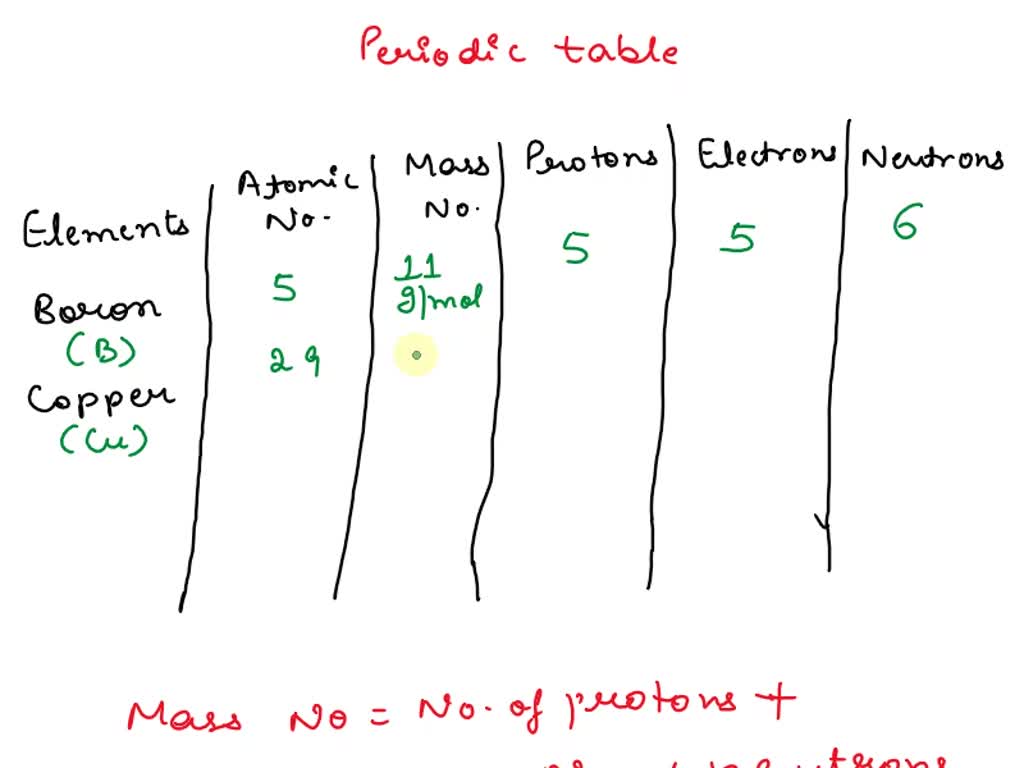 Periodic table
Elements Atomic No. Mass No. Protons Electrons Neutrons
Boron (B) 5 11 g/mol 5 5 6
Copper (Cu) 29
Mass No = No. of protons +
neutrons